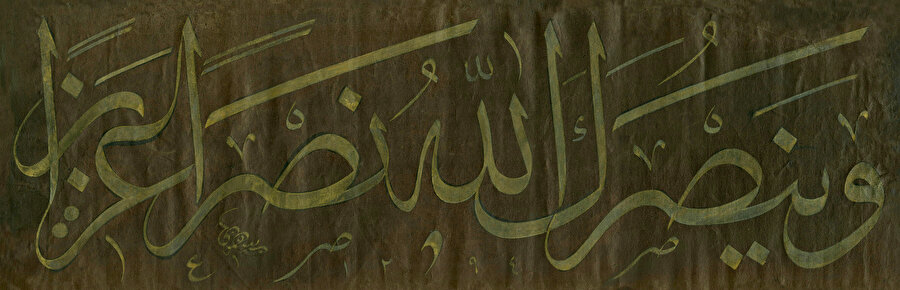 وَيَنْصُرَكَ اللّٰهُ نَصْرًا عَزِيزًا
١٢٩٤